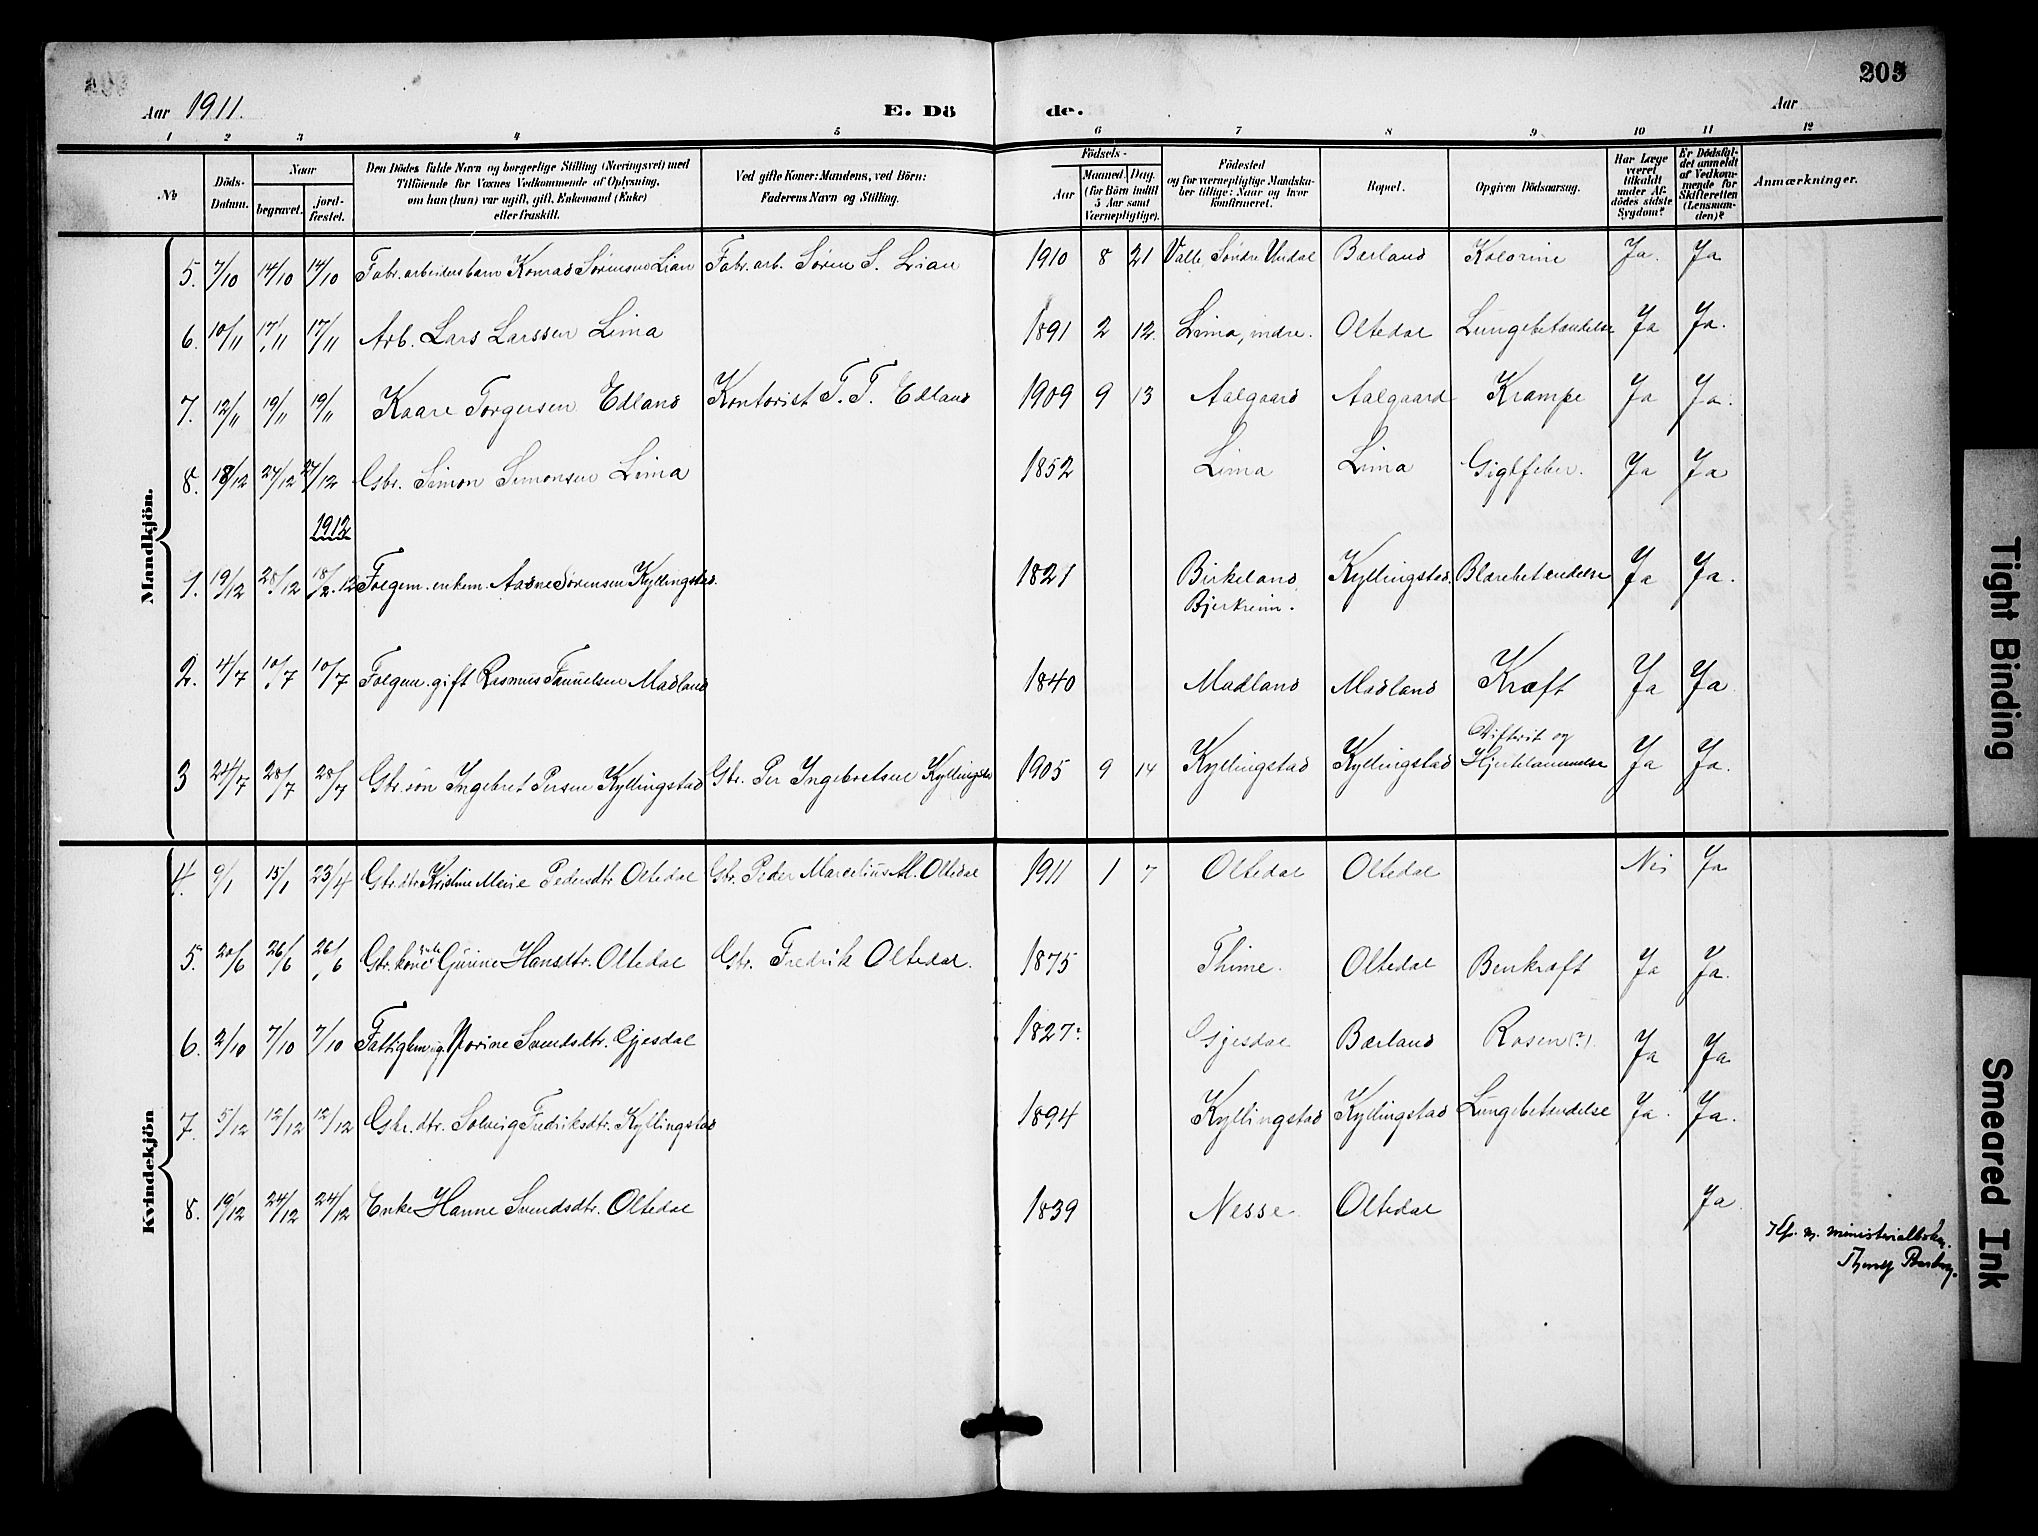 203
Aar 1911. E. Dö de. Aar
1 2 3 4 5 6 7 8 9 10 11 12
No Döds-Datum. Naar begravet. jord-fæstet. Den Dödes fulde Navn og borgerlige Stilling (Næringsvei) med Tilföiende for Voxnes Vedkommende af Oplysning, om han (hun) var ugift, gift, Enkemand (Enke) eller fraskilt. Ved gifte Koner: Mandens, ved Börn: Faderens Navn og Stilling. Födsels- Aar Maaned. Dag. (for Börn indtil 5 Aar samt Værnepligtige). Födested og for værnepligtige Mandska-ber tillige: Naar og hvor konfirmeret. Bopæl. Opgiven Dödsaarsag. Har Læge været tilkaldt under Af-dödes sidste Sygdom? Er Dødsfal-det anmeldt af Vedkom-mende for Skifteretten (Lensman-den)? Anmærkninger.
Mandkjön.
5. 7/10 14/10 14/10 Fabr. arbeidersbarn Konrad Sørensen Lian Fabr. arb. Søren S. Lian 1910 8 21 Valle Søndre Undal Bærland Kolerine Ja. Ja
6. 10/11 17/11 17/11 Arb. Lars Larssen Lima 1891 2 12. Lima, indre. Oltedal Lungebetændelse Ja Ja.
7. 12/11 19/11 19/11 Kaare Torgersen Edland Kontorist T. T. Edland 1909 9 13 Aalgaard Aalgaard Krampe Ja Ja.
8. 18/12 27/12 27/12 Gbr. Simon Simonsen Lima 1852 Lima Lima Gigtfeber. Ja Ja
1912
1. 19/12 28/12 18/2.12 Folgem. enkem. Aadne Sørensen Kyllingstad. 1821 Birkeland Bjerkreim. Kyllingstad. Blærebetændelse Ja Ja.
2. 4/7 10/7 10/7 Folgem. gift Rasmus Samuelsen Madland 1840 Madland Madland Kræft Ja Ja
3 24/7 28/7 28/7 Gbr. søn Ingebret Persen Kyllingstad Gbr. Per Ingebretsen Kyllingstad 1905 9 14 Kyllingstad Kyllingstad Difterit og Hjertelammelse Ja Ja.
Kvindekjön
4. 9/1 15/1 23/4 Gbr. dtr. Kristine Marie Pedersdtr Oltedal Gbr. Peder Marcelius M. Oltedal 1911 1 7 Oltedal Oltedal Nei Ja
5. 20/6 26/6 26/6 Gbr. kone Gurine Hansdtr. Oltedal Gbr. Fredrik Oltedal. 1875 Thime. Oltedal Benkræft Ja Ja.
6. 2/10 7/10 7/10 Fattiglem ug. Norine Svendsdtr. Gjesdal 1827? Gjesdal Bærland Rosen (?). Ja Ja.
7. 5/12 12/12 12/12 Gbr. dtr. Solveig Fredriksdtr. Kyllingstad 1894 Kyllingstad Kyllingstad Lungebetændelse Ja. Ja.
8. 19/12 24/12 24/12 Enke Hanne Svendsdtr. Oltedal 1839 Nesse Oltedal Ja
m. ministerialboken.
Tight Binding
Smeared Ink